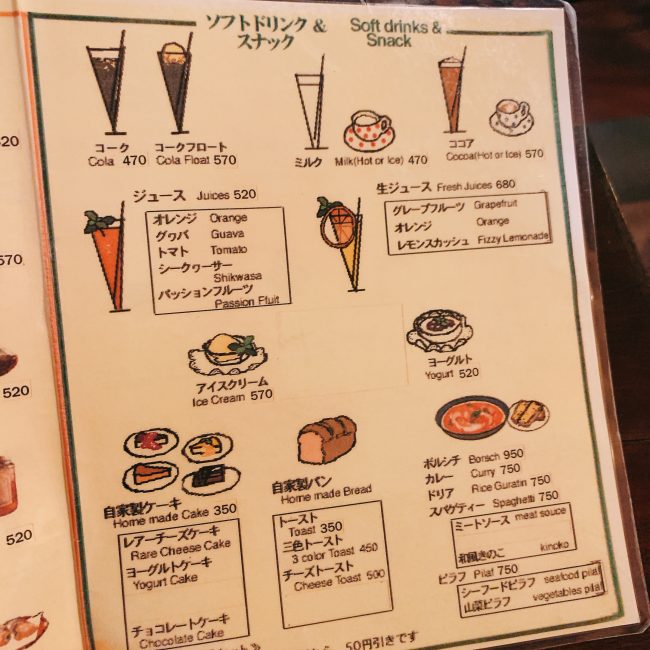 ソフトドリンク & スナック
Soft drinks & Snack
コーク
Cola 470
コークフロート
Cola Float 570
ミルク Milk(Hot or Ice) 470
ココア
Cocoa(Hot or Ice) 570
ジュース Juices 520
オレンジ Orange
グヮバ Guava
トマト Tomato
シークヮーサー
Shikwasa
パッションフルーツ
Passion Ffuit
生ジュース Fresh Juices 680
グレープフルーツ Grapefruit
オレンジ Orange
レモンスカッシュ Fizzy Lemonade
アイスクリーム
Ice Cream 570
ヨーグルト
Yogurt 520
自家製ケーキ
Home made Cake 350
レアーチーズケーキ
Rare Cheese Cake
ヨーグルトケーキ
Yogurt Cake
チョコレートケーキ
Chocolate Cake
自家製パン
Home made Bread
トースト
Toast 350
三色トースト
3 color Toast 450
チーズトースト
Cheese Toast 500
ボルシチ Borsch 950
カレー Curry 750
ドリア Rice Guratin 750
スパゲティー Spaghetti 750
ミートソース meat souce
和風きのこ kinoko
ピラフ Pilaf 750
シーフードピラフ seafood pilaf
山菜ピラフ vegetables pilaf
50円引きです
520
570
520
520